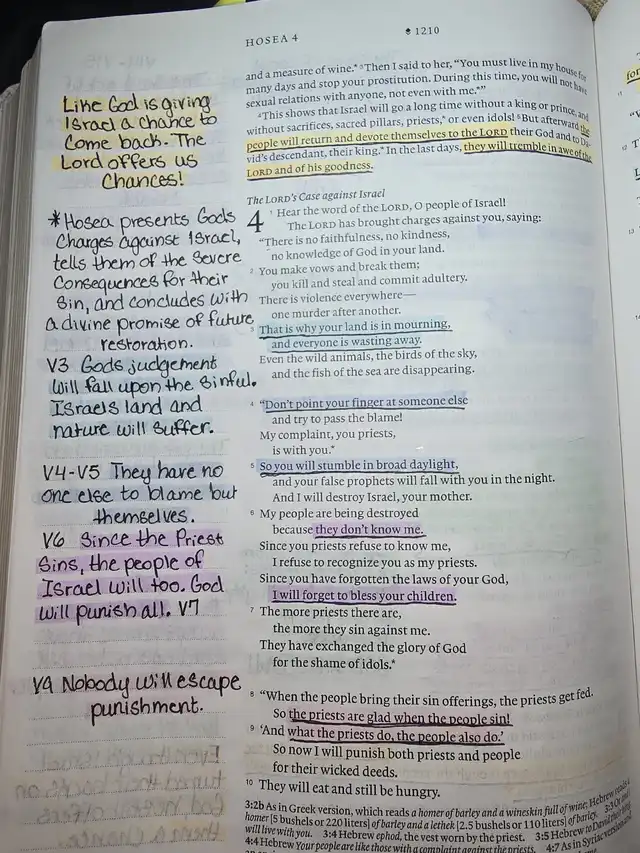 HOSEA 4
1210
Like God is giving
Israel a chance to
Come back. The
Lord offers us
Chances!
*Hosea presents Gods
Charges against Israel,
tells them of the severe
Consequences for their
Sin, and concludes with
a divine promise of future
restoration.
V3 Gods judgement
will fall upon the Sinful.
Israels land and
nature will suffer.
V4-V5 They have no
one else to blame but
themselves.
V6 Since the Priest
Sins, the people of
Israel will too. God
will punish all. V7
V9 Nobody will escape
punishment.
and a measure of wine.* 3 Then I said to her, “You must live in my house for
many days and stop your prostitution. During this time, you will not have
sexual relations with anyone, not even with me.*”
4 This shows that Israel will go a long time without a king or prince, and
without sacrifices, sacred pillars, priests,* or even idols! 5 But afterward the
people will return and devote themselves to the LORD their God and to Da-
vid’s descendant, their king.* In the last days, they will tremble in awe of the
LORD and of his goodness.
The LORD’s Case against Israel
4 1 Hear the word of the LORD, O people of Israel!
The LORD has brought charges against you, saying:
“There is no faithfulness, no kindness,
no knowledge of God in your land.
2 You make vows and break them;
you kill and steal and commit adultery.
There is violence everywhere—
one murder after another.
3 That is why your land is in mourning,
and everyone is wasting away.
Even the wild animals, the birds of the sky,
and the fish of the sea are disappearing.
4 “Don’t point your finger at someone else
and try to pass the blame!
My complaint, you priests,
is with you.*
5 So you will stumble in broad daylight,
and your false prophets will fall with you in the night.
And I will destroy Israel, your mother.
6 My people are being destroyed
because they don’t know me.
Since you priests refuse to know me,
I refuse to recognize you as my priests.
Since you have forgotten the laws of your God,
I will forget to bless your children.
7 The more priests there are,
the more they sin against me.
They have exchanged the glory of God
for the shame of idols.*
8 “When the people bring their sin offerings, the priests get fed.
So the priests are glad when the people sin!
9 ‘And what the priests do, the people also do.’
So now I will punish both priests and people
for their wicked deeds.
10 They will eat and still be hungry.
3:2b As in Greek version, which reads a homer of barley and a wineskin full of wine; Hebrew reads a
homer [5 bushels or 220 liters] of barley and a lethek [2.5 bushels or 110 liters] of barley. 3:3 Or
will live with you. 3:4 Hebrew ephod, the vest worn by the priest. 3:5 Hebrew to David their king.
4:4 Hebrew Your people are like those with a complaint against the priests. 4:7 As in Syriac version